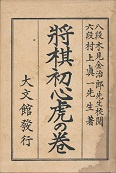 八段木見金治郎先生校閲
六段村上真一先生著
將棋初心虎の巻
大文館發行